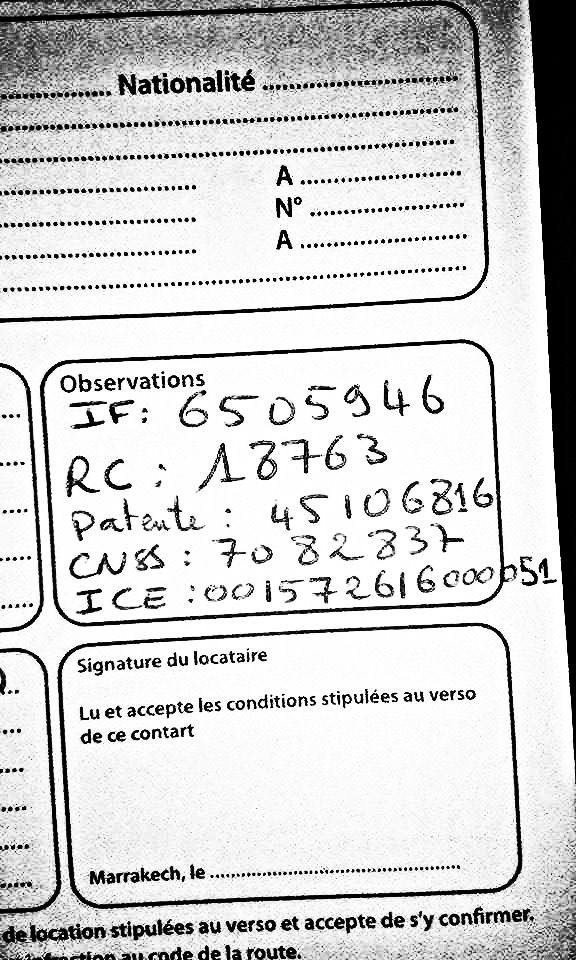 Nationalité
A
N°
A
Observations
IF: 6505946
RC : 18763
Patente : 45106816
CNSS : 7082837
ICE : 001572616000051
Signature du locataire
Lu et accepte les conditions stipulées au verso
de ce contart
Marrakech, le
de location stipulées au verso et accepte de s'y confirmer.
infraction au code de la route.